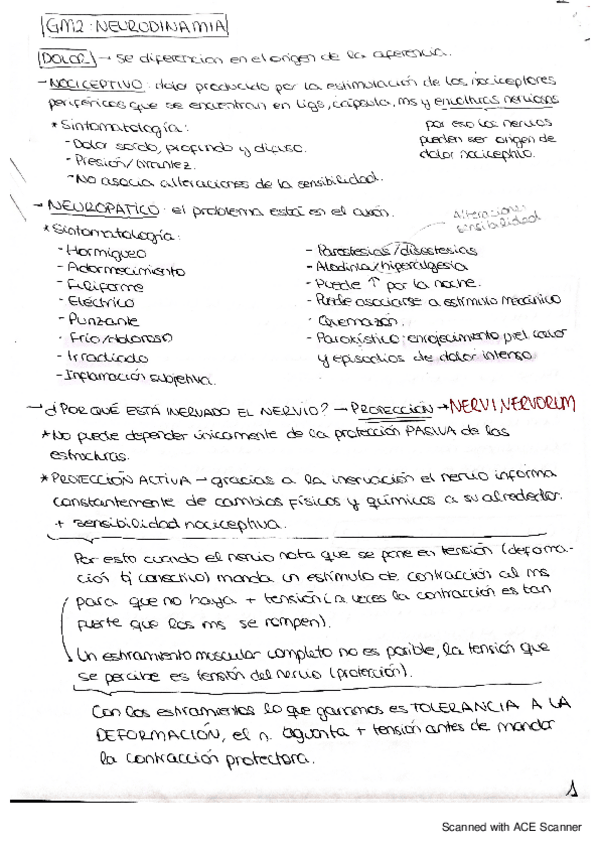 GM2: NEURODINAMIA
DOLOR → se diferencian en el origen de la aferencia.
- NOCICEPTIVO: dolor producido por la estimulación de los nociceptores
periféricos que se encuentran en ligs, cápsula, ms y envolturas nerviosas
* Sintomatología:
- Dolor sordo, profundo y difuso.
- Presión/tirantez.
- No asocia alteraciones de la sensibilidad.
por eso los nervios
pueden ser origen de
dolor nociceptivo.
- NEUROPÁTICO: el problema está en el axón.
Alteraciones
sensibilidad
* Sintomatología:
- Hormigueo
- Adormecimiento
- Filiforme
- Eléctrico
- Punzante
- Frío/doloroso
- Irradiado
- Inflamación subjetiva.
- Parestesias/disestesias
- Alodinia/hiperalgesia
- Puede ↑ por la noche.
- Puede asociarse a estímulo mecánico
- Quemazón.
- Paroxístico: enrojecimiento piel, calor
y episodios de dolor intenso
- ¿POR QUÉ ESTÁ INERVADO EL NERVIO? → PROTECCIÓN → NERVI NERVORUM
* No puede depender únicamente de la protección PASIVA de las
estructuras.
* PROTECCIÓN ACTIVA → gracias a la inervación el nervio informa
constantemente de cambios físicos y químicos a su alrededor.
+ sensibilidad nociceptiva.
Por esto cuando el nervio nota que se pone en tensión (deforma-
ción tj conectivo) manda un estímulo de contracción al ms
para que no haya + tensión (a veces la contracción es tan
fuerte que los ms se rompen).
Un estiramiento muscular completo no es posible, la tensión que
se percibe es tensión del nervio (protección).
Con los estiramientos lo que ganamos es TOLERANCIA A LA
DEFORMACIÓN, el n. aguanta + tensión antes de mandar
la contracción protectora.
1
Scanned with ACE Scanner